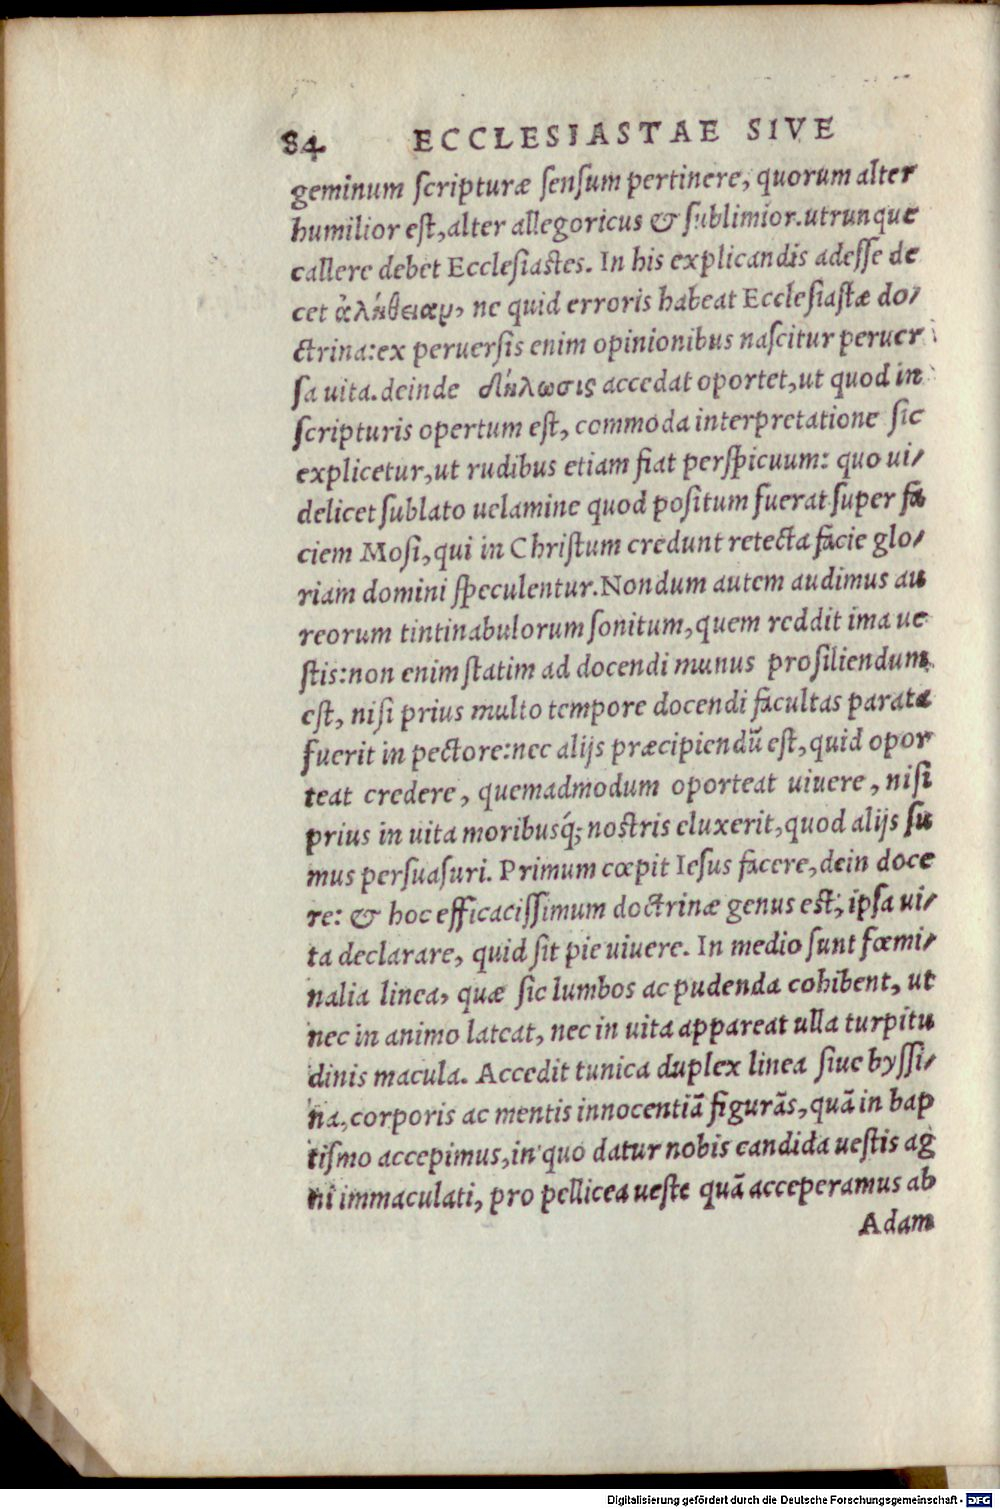 84 ECCLESIASTAE SIVE
geminum scripturæ sensum pertinere, quorum alter
humilior est, alter allegoricus & sublimior. utrunque
callere debet Ecclesiastes. In his explicandis adesse de
cet ἀλήθειαν, ne quid erroris habeat Ecclesiastæ do/
ctrina: ex peruersis enim opinionibus nascitur peruer
sa uita. deinde δήλωσις accedat oportet, ut quod in
scripturis opertum est, commoda interpretatione sic
explicetur, ut rudibus etiam fiat perspicuum: quo ui/
delicet sublato uelamine quod positum fuerat super fa
ciem Mosi, qui in Christum credunt retecta facie glo/
riam domini speculentur. Nondum autem audimus au
reorum tintinabulorum sonitum, quem reddit ima ue
stis: non enim statim ad docendi munus prosiliendum
est, nisi prius multo tempore docendi facultas parata
fuerit in pectore: nec alijs præcipiendũ est, quid opor
teat credere, quemadmodum oporteat uiuere, nisi
prius in uita moribusq́; nostris eluxerit, quod alijs su
mus persuasuri. Primum cœpit Iesus facere, dein doce
re: & hoc efficacissimum doctrinæ genus est, ipsa ui/
ta declarare, quid sit pie uiuere. In medio sunt fœmi/
nalia linea, quæ sic lumbos ac pudenda cohibent, ut
nec in animo lateat, nec in uita appareat ulla turpitu
dinis macula. Accedit tunica duplex linea siue byssi/
na, corporis ac mentis innocentiã figurãs, quã in bap
tismo accepimus, in quo datur nobis candida uestis ag
ni immaculati, pro pellicea ueste quã acceperamus ab
Adam
Digitalisierung gefördert durch die Deutsche Forschungsgemeinschaft - DFG